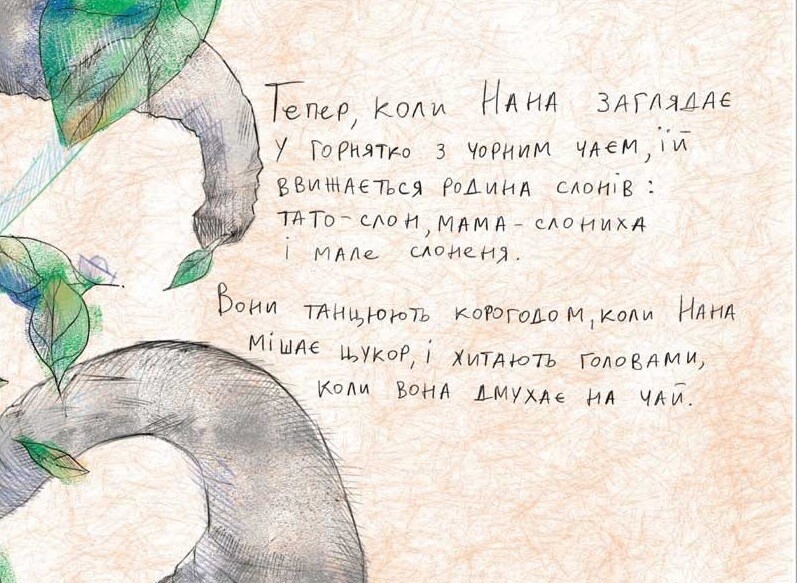 Тепер, коли Нана заглядає
у горнятко з чорним чаєм, їй
ввижається родина слонів:
тато-слон, мама-слониха
і мале слоненя.
Вони танцюють корогодом, коли Нана
мішає цукор, і хитають головами,
коли вона дмухає на чай.